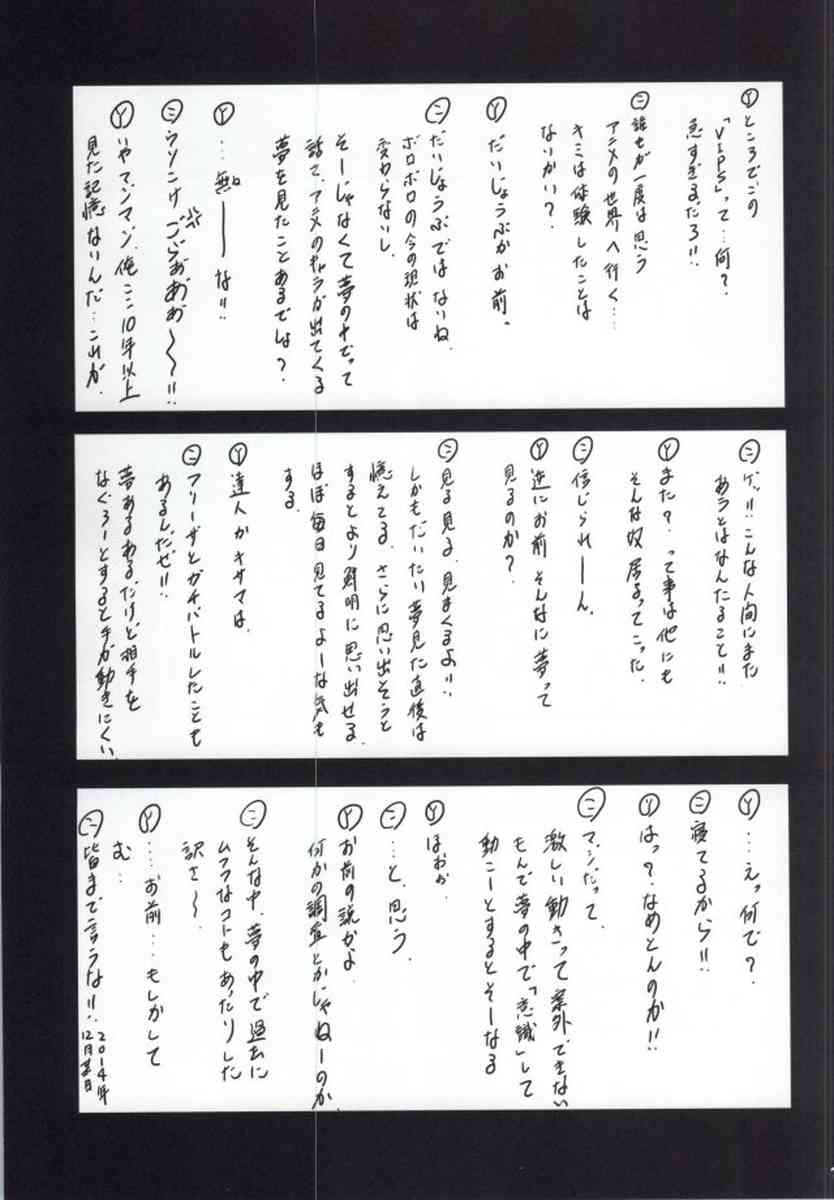 Ⓨところでこの
「VIPS」って…何？
急すぎるだろ!!
㊁誰もが一度は思う
アニメの世界へ行く…
キミは体験したことは
ないかい？
Ⓨだいじょうぶかお前。
㊁だいじょうぶではないね、
ボロボロの今の現状は
変わらないし、
そーじゃなくて夢の中でって
話で、アニメのキャラが出てくる
夢を見たことあるでしょ？
Ⓨ…無ーな!!
㊁ウソこけごらぁぁぁ〜〜!!
Ⓨいやマンマン、俺ここ10年以上
見た記憶ないんだ…これが。
㊁ゲッ!!こんな人間にまた
あうとはなんたること!!
Ⓨまた？って事は他にも
そんな奴居るってこった。
㊁信じられーん。
Ⓨ逆にお前そんなに夢って
見るのか？
㊁見る見る、見まくるよ!!
しかもだいたい夢見た直後は
憶えてる、さらに思い出そうと
するとより鮮明に思い出せる、
ほぼ毎日見てるよーな気も
する。
Ⓨ達人かキサマは、
㊁フリーザとガチバトルしたことも
あるんだぜ!!
夢あるあるだけど相手を
なぐろーとすると手が動きにくい、
Ⓨ…えっ何で？
㊁寝てるから!!
Ⓨはっ？なめとんのか!!
㊁マジだって、
激しい動きって案外できない
もんで夢の中で「意識」して
動こーとするとそーなる
Ⓨほぉぉ、
㊁…と、思う、
Ⓨお前の説かよ、
何かの調査とかじゃねーのか、
㊁そんな中、夢の中で過去に
ムフフなコトもあったりした
訳さ〜、
Ⓨ…お前…もしかして
む…
㊁皆まで言うな!!
2014年
12月某日